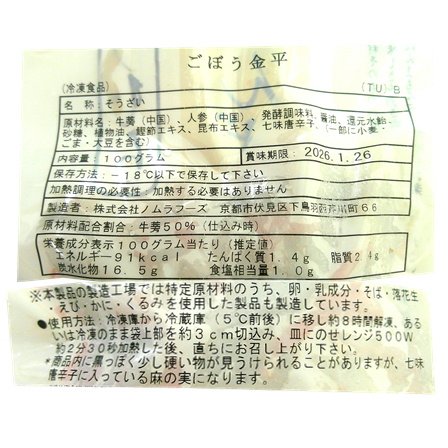 ごぼう金平
(冷凍食品)
(TU) B
名称:そうざい
原材料名:牛蒡(中国)、人参(中国)、発酵調味料、醤油、還元水飴、
砂糖、植物油、鰹節エキス、昆布エキス、七味唐辛子、(一部に小麦・
ごま・大豆を含む)
内容量:100グラム 賞味期限:2026.1.26
保存方法:-18℃以下で保存して下さい
加熱調理の必要性:加熱する必要はありません
製造者:株式会社ノムラフーズ 京都市伏見区下鳥羽葭田町66
原材料配合割合:牛蒡50%(仕込み時)
栄養成分表示100グラム当たり(推定値)
エネルギー91kcal たんぱく質1.4g 脂質2.4g
炭水化物16.5g 食塩相当量1.0g
※本製品の製造工場では特定原材料のうち、卵・乳成分・そば・落花生
・えび・かに・くるみを使用した製品も製造しています。
●使用方法:冷凍庫から冷蔵庫(5℃前後)に移し約8時間解凍、ある
いは冷凍のまま袋上部を約3cm切込み、皿にのせレンジ500W
約2分30秒加熱した後、直ちにお召し上がり下さい。
*商品内に黒っぽく少し硬い物が見うけられることがありますが、七味
唐辛子に入っている麻の実になります。